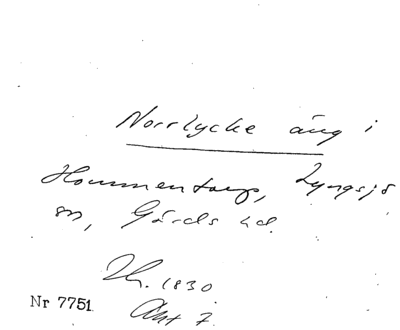 Norrlycke äng i
Hommentorp, Lyngsjö
sn, Gärds hd.
1830
Nr 7751 Akt 7